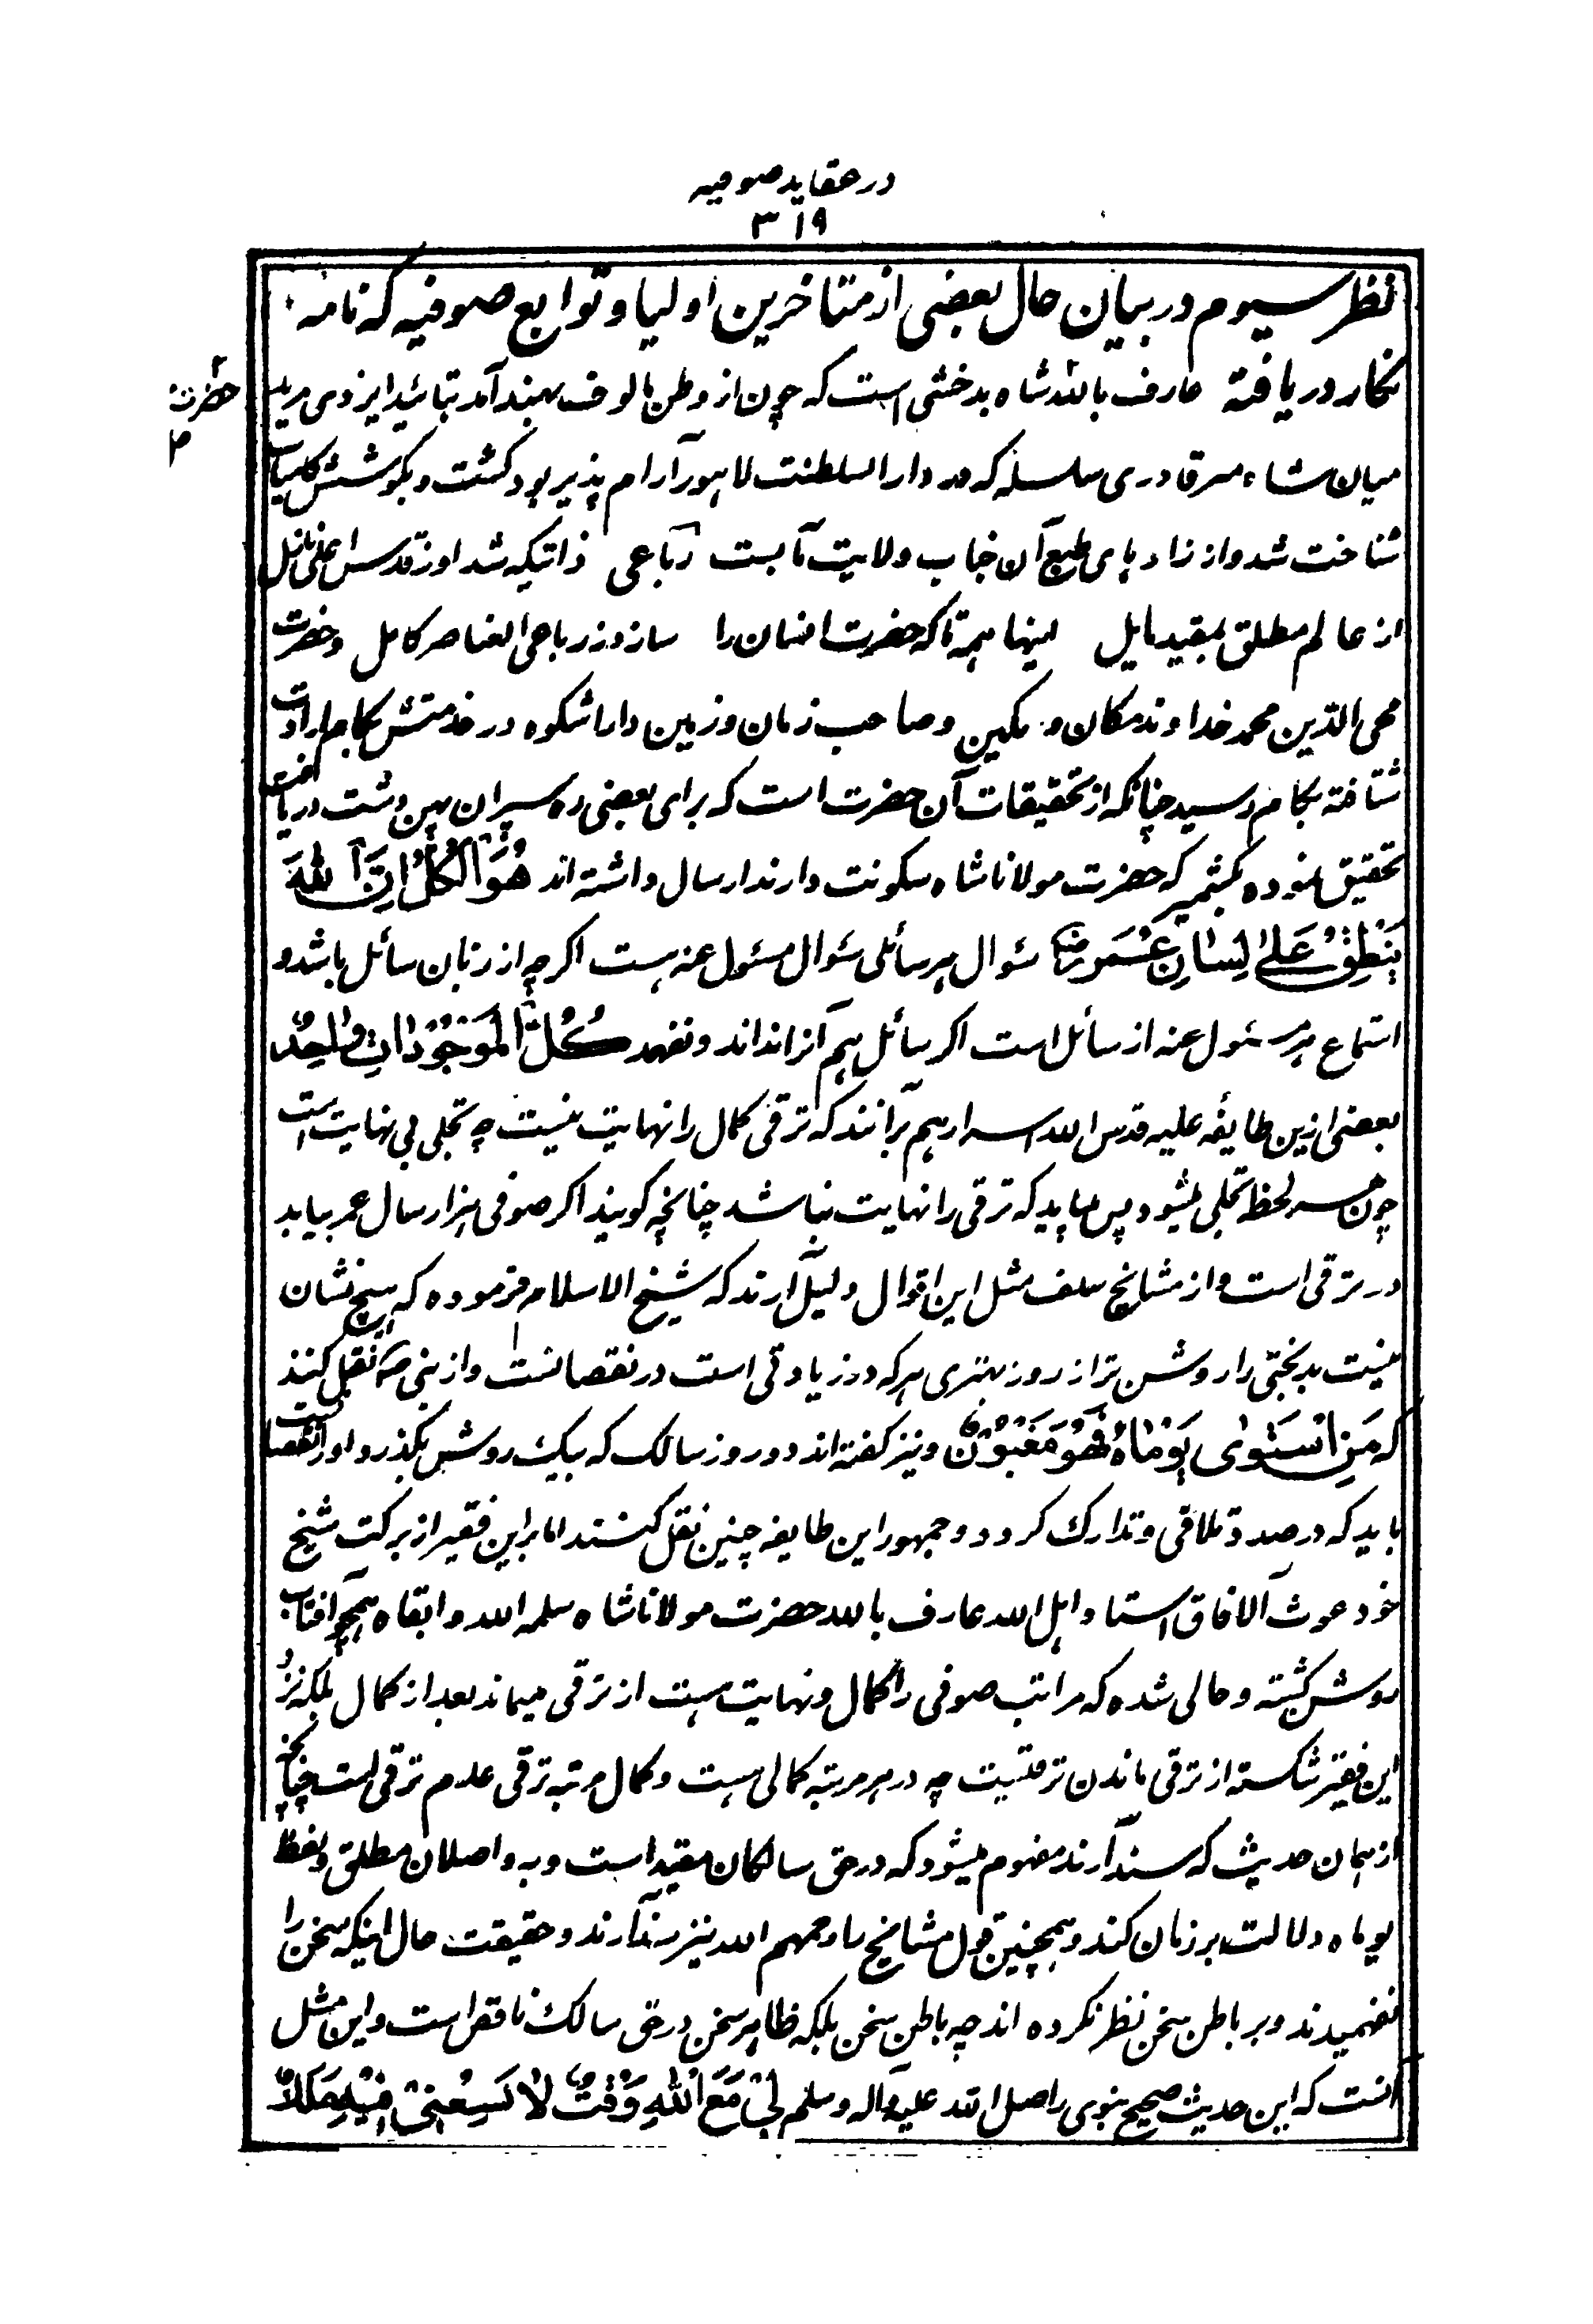 در عقاید صوفیه
۳۱۹
نظر سیوم در بیان حال بعضی از متاخرین اولیا و توابع صوفیه که نامه
نکار دریافته عارف بالله شاه بدخشی است که چون از وطن مالوف بهند آمد بتائید ایزدی مرید
حضرت
میان شاه میر قادری سلسله که در دار السلطنت لاهور آرام پذیر بود کشت و بکوشش کلیات
شناخت شد و از زاد پای طبع آن جناب ولایت مآبست رباعی ذاتیکه شد اوز قدس اعلی نازل
از عالم مطلق بمقید مایل اینها همه تا که حضرت انسان را سازد زرباعی العناصر کامل و حضرت
محی الدین محمد خداوند مکان و مکین و صاحب زمان و زمین دارا شکوه در خدمتش بکام ارادت
شتافته بکام رسید چنانکه از تحقیقات آن حضرت است که برای بعضی ره سپران بهین دشت دریافت
تحقیق نموده بکشمیر که حضرت مولانا شاه سکونت دارند ارسال داشته اند هُوَ الکُلُّ اِنَّ اللهَ
یَنْطِقُ عَلیٰ لِسَانِ عُمَر رض سئوال هر سائلی سئوال مسئول عنه هست اکرچه از زبان سائل باشد و
استماع هر مسئول عنه از سائل است اکر سائل هم آنرا نداند و نفهمد کُلُّ الْمَوْجُوْدَاتِ وَاحِدٌ
بعضی ازین طایفه علیه قدس الله اسرارهم برآنند که ترقی کمال را نهایت نیست چه تجلی بی نهایت است
چون هر لحظه تجلی میشود پس باید که ترقی را نهایت نباشد چنانچه کویند اکر صوفی هزار سال عمر بیابد
در ترقی است و از مشایخ سلف مثل این اقوال دلیل آرند که شیخ الاسلام فرموده که هیچ نشان
نیست بدبختی را روشن تر از روز بتری هر که در زیادتی است در نقصانست و از نبی صه نقل کنند
که مَنِ اسْتَوٰی یَوْمَاهُ فَهُوَ مَغْبُوْنٌ و نیز کفته اند دو روز سالک که بیک روش بکذرد او را نقصانست
باید که در صدد تلافی و تدارک کردد و جمهور این طایفه چنین نقل کنند اما برین فقیر از برکت شیخ
خود غوث الافاق استاد اهل الله عارف بالله حضرت مولانا شاه سلمه الله و ابقاه همچو افتاب
روشن کشته و حالی شده که مراتب صوفی را کمال و نهایت هست از ترقی میماند بعد از کمال بلکه نزد
این فقیر شکسته از ترقی ماندن ترقتیست چه در هر مرتبه کمالی هست و کمال مرتبه ترقی عدم ترقی است چنانچه
از همان حدیث که سند آرند مفهوم میشود که در حق سالکان مقید است و به واصلان مطلق و لفظ
یوماه دلالت بر زمان کند و همچنین قول مشایخ را رحمهم الله نیز سند آرند و حقیقت حال اینکه سخن را
نفهمیدند و بر باطن سخن نظر نکرده اند چه باطن سخن بلکه ظاهر سخن در حق سالک ناقص است و این مثل
آنست که این حدیث صحیح نبوی را صلی الله علیه و آله و سلم لِیْ مَعَ اللهِ وَقْتٌ لا یَسَعُنِیْ فِیْهِ مَلَکٌ